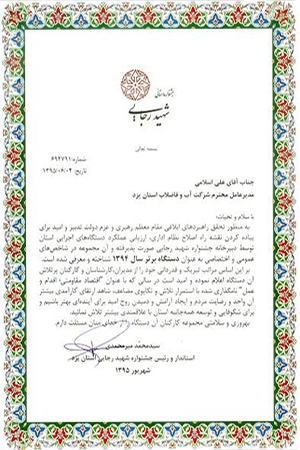 جشنواره استانی
شهید رجایی
بسمه تعالی
شماره: ۶۹۲۷۹۱
تاریخ: ۱۳۹۵/۰۶/۰۲
جناب آقای علی اسلامی
مدیرعامل محترم شرکت آب و فاضلاب استان یزد
با سلام و تحیات؛
به منظور تحقق راهبردهای ابلاغی مقام معظم رهبری و عزم دولت تدبیر و امید برای
پیاده کردن نقشه راه اصلاح نظام اداری، ارزیابی عملکرد دستگاه‌های اجرایی استان
توسط دبیرخانه جشنواره شهید رجایی صورت پذیرفته و آن مجموعه در شاخص‌های
عمومی و اختصاصی به عنوان دستگاه برتر سال ۱۳۹۴ شناخته و معرفی شده است.
بر این اساس مراتب تبریک و قدردانی خود را از مدیران،کارشناسان و کارکنان پرتلاش
آن دستگاه اعلام نموده و امید است در سالی که با عنوان "اقتصاد مقاومتی؛ اقدام و
عمل" نامگذاری شده با استمرار تلاش و تکاپوی مضاعف، شاهد ارتقای کارآمدی بیشتر
آن واحد و رضایت مردم و ایجاد آرامش و دمیدن روح امید برای آینده‌ای بهتر باشیم و
برای شکوفایی و توسعه همه‌جانبه استان با علاقمندی بیشتر تلاش نمائید.
بهروزی و سلامتی مجموعه کارکنان آن دستگاه را از خدای منان مسئلت دارم.
سیدمحمد میرمحمدی
استاندار و رئیس جشنواره شهید رجایی استان یزد
شهریور ۱۳۹۵